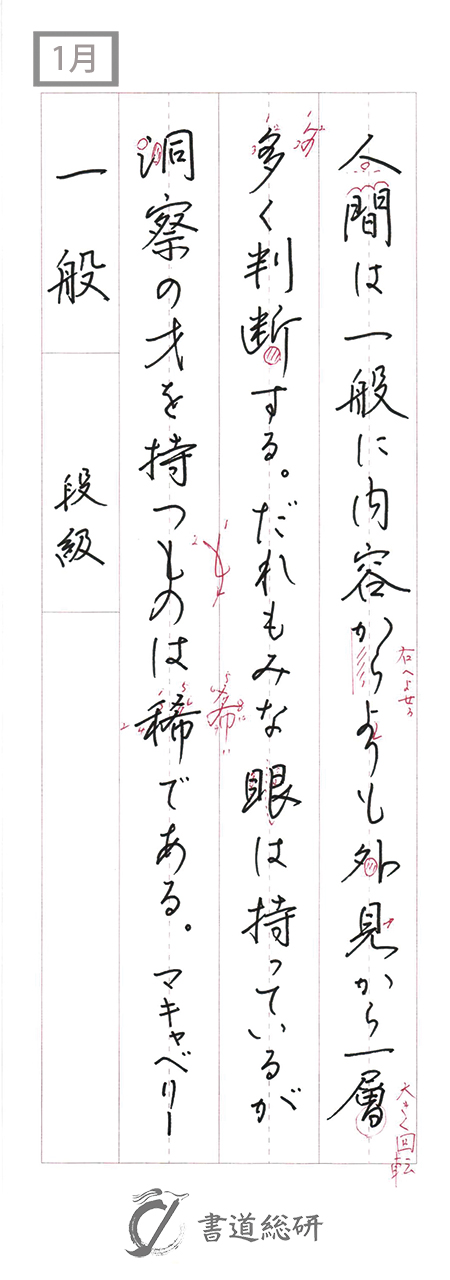 1月
人間は一般に内容からよりも外見から一層
右へよせる
大きく回転
多く判断する。だれもみな眼は持っているが
洞察の才を持つものは稀である。マキャベリー
一般
段級
書道総研